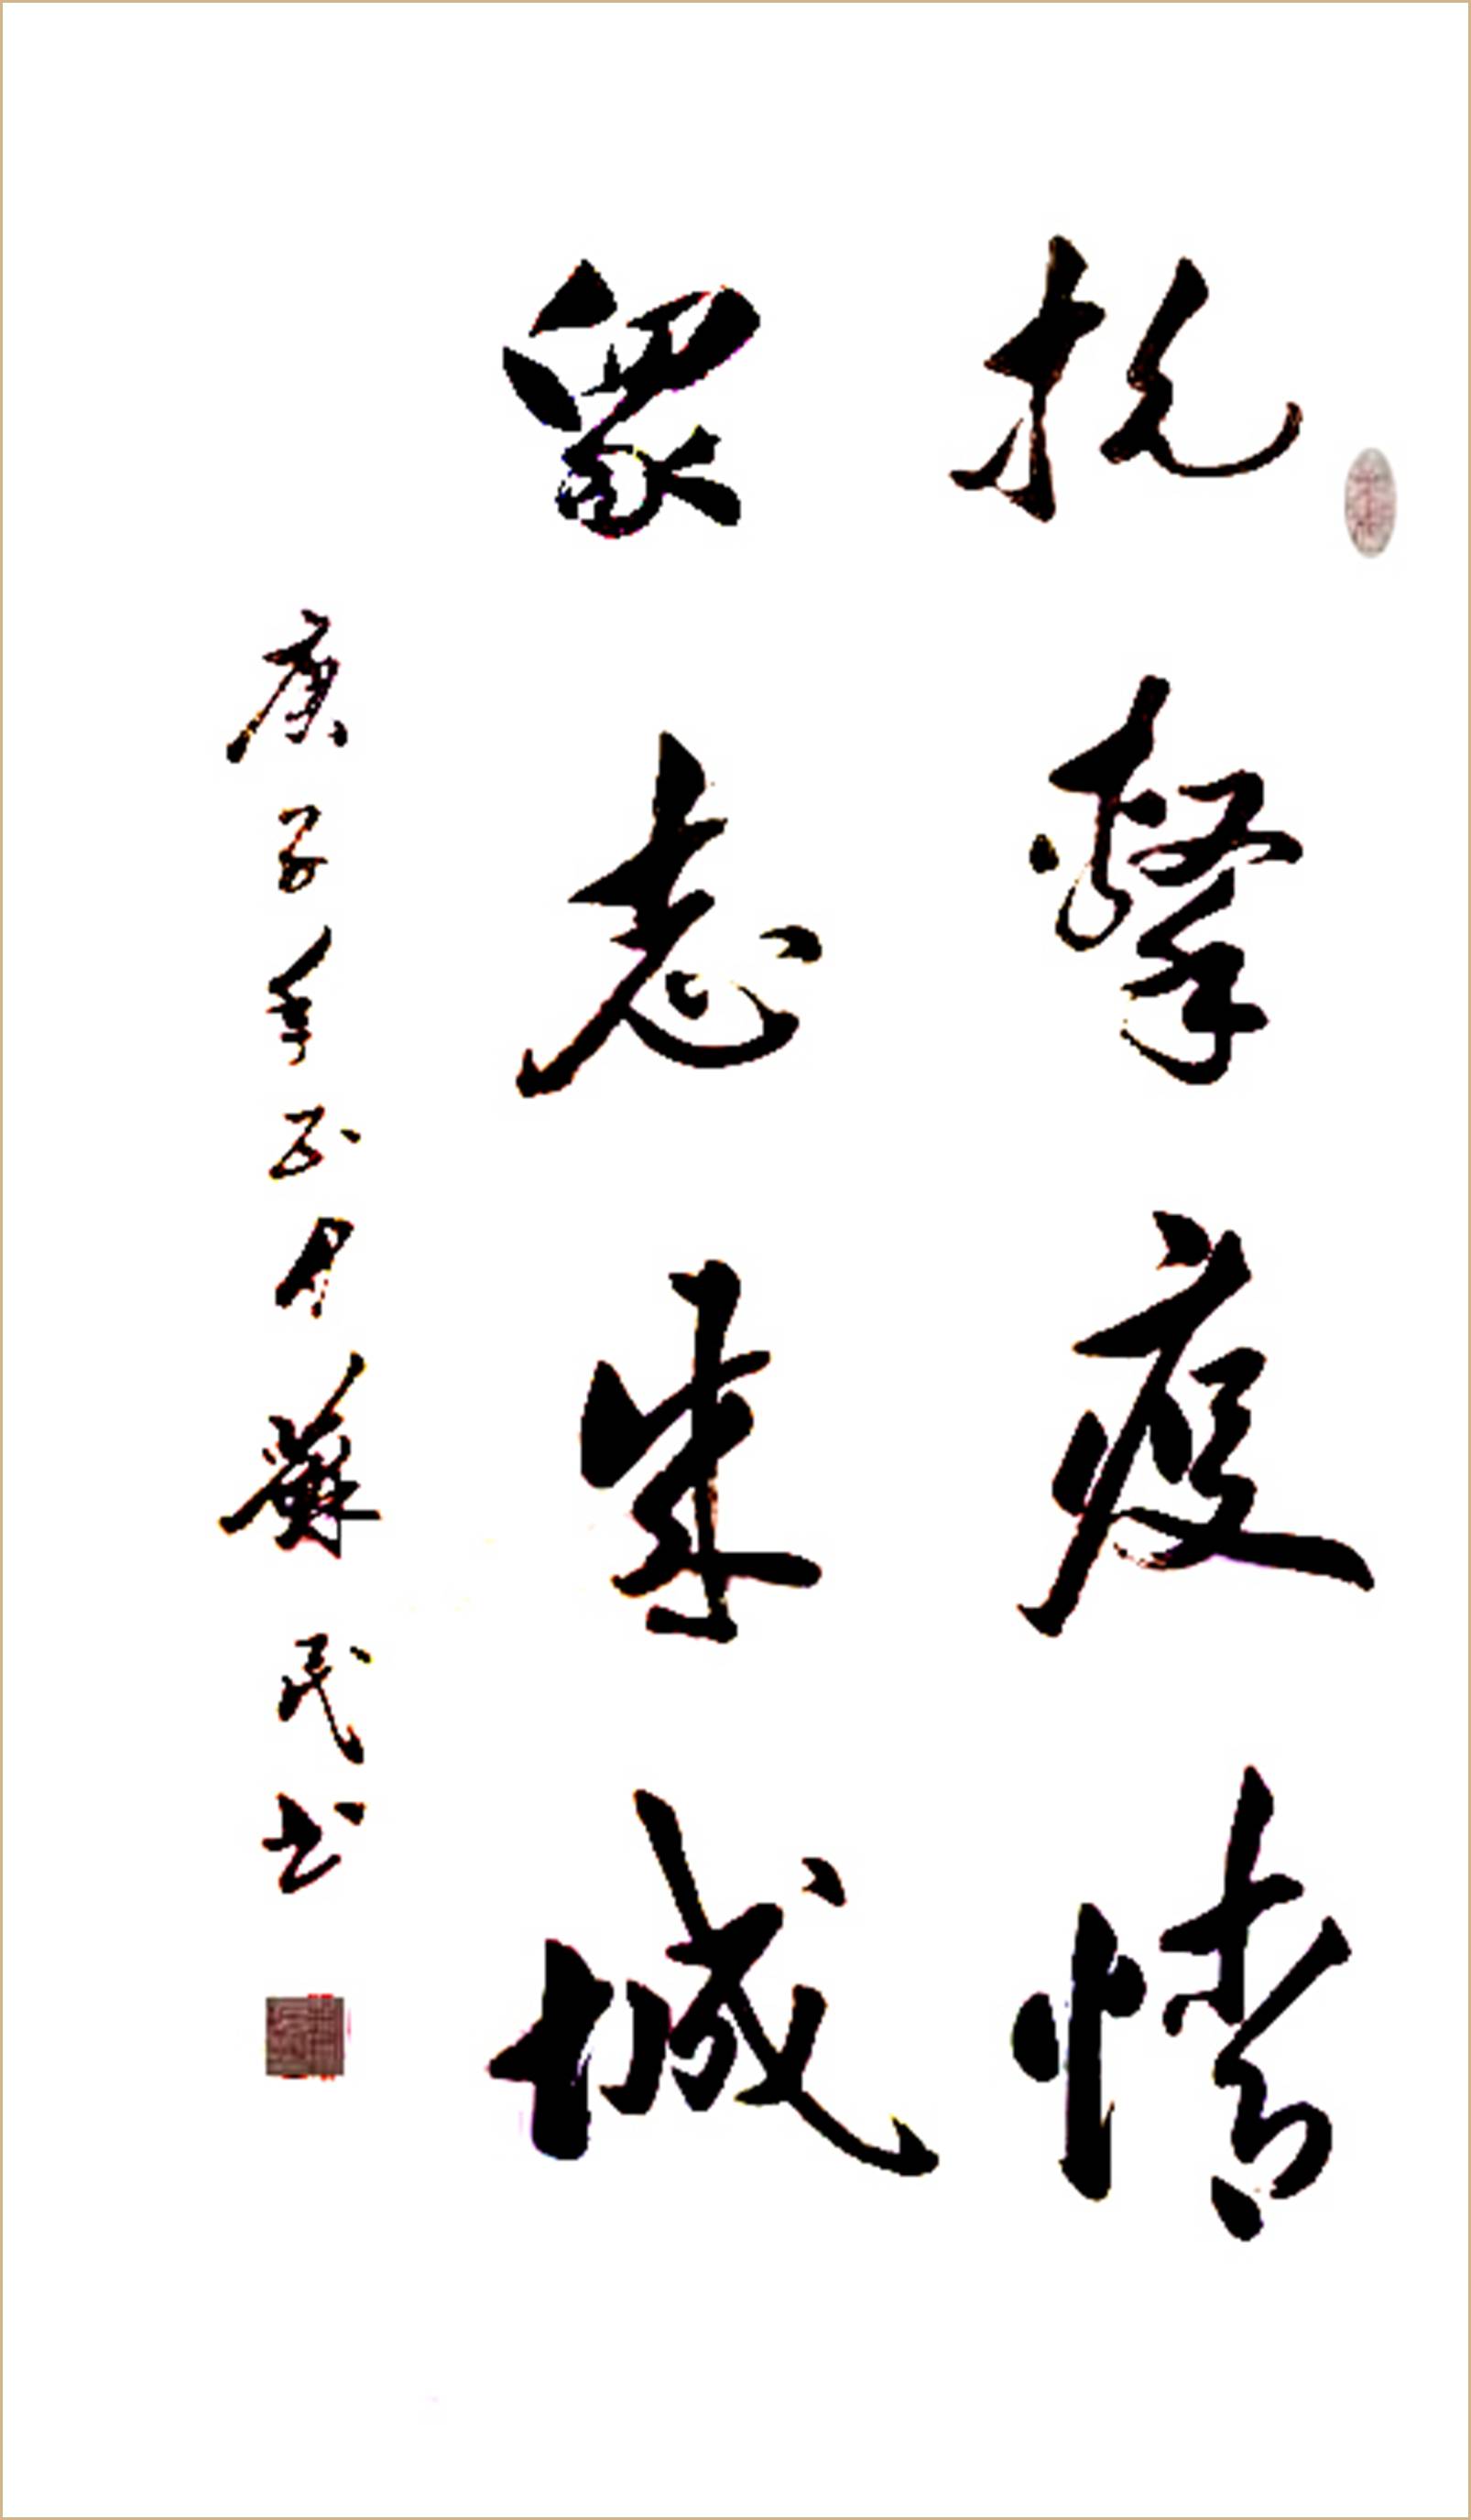 抗擊疫情
眾志成城
庚子年正月蘇民书